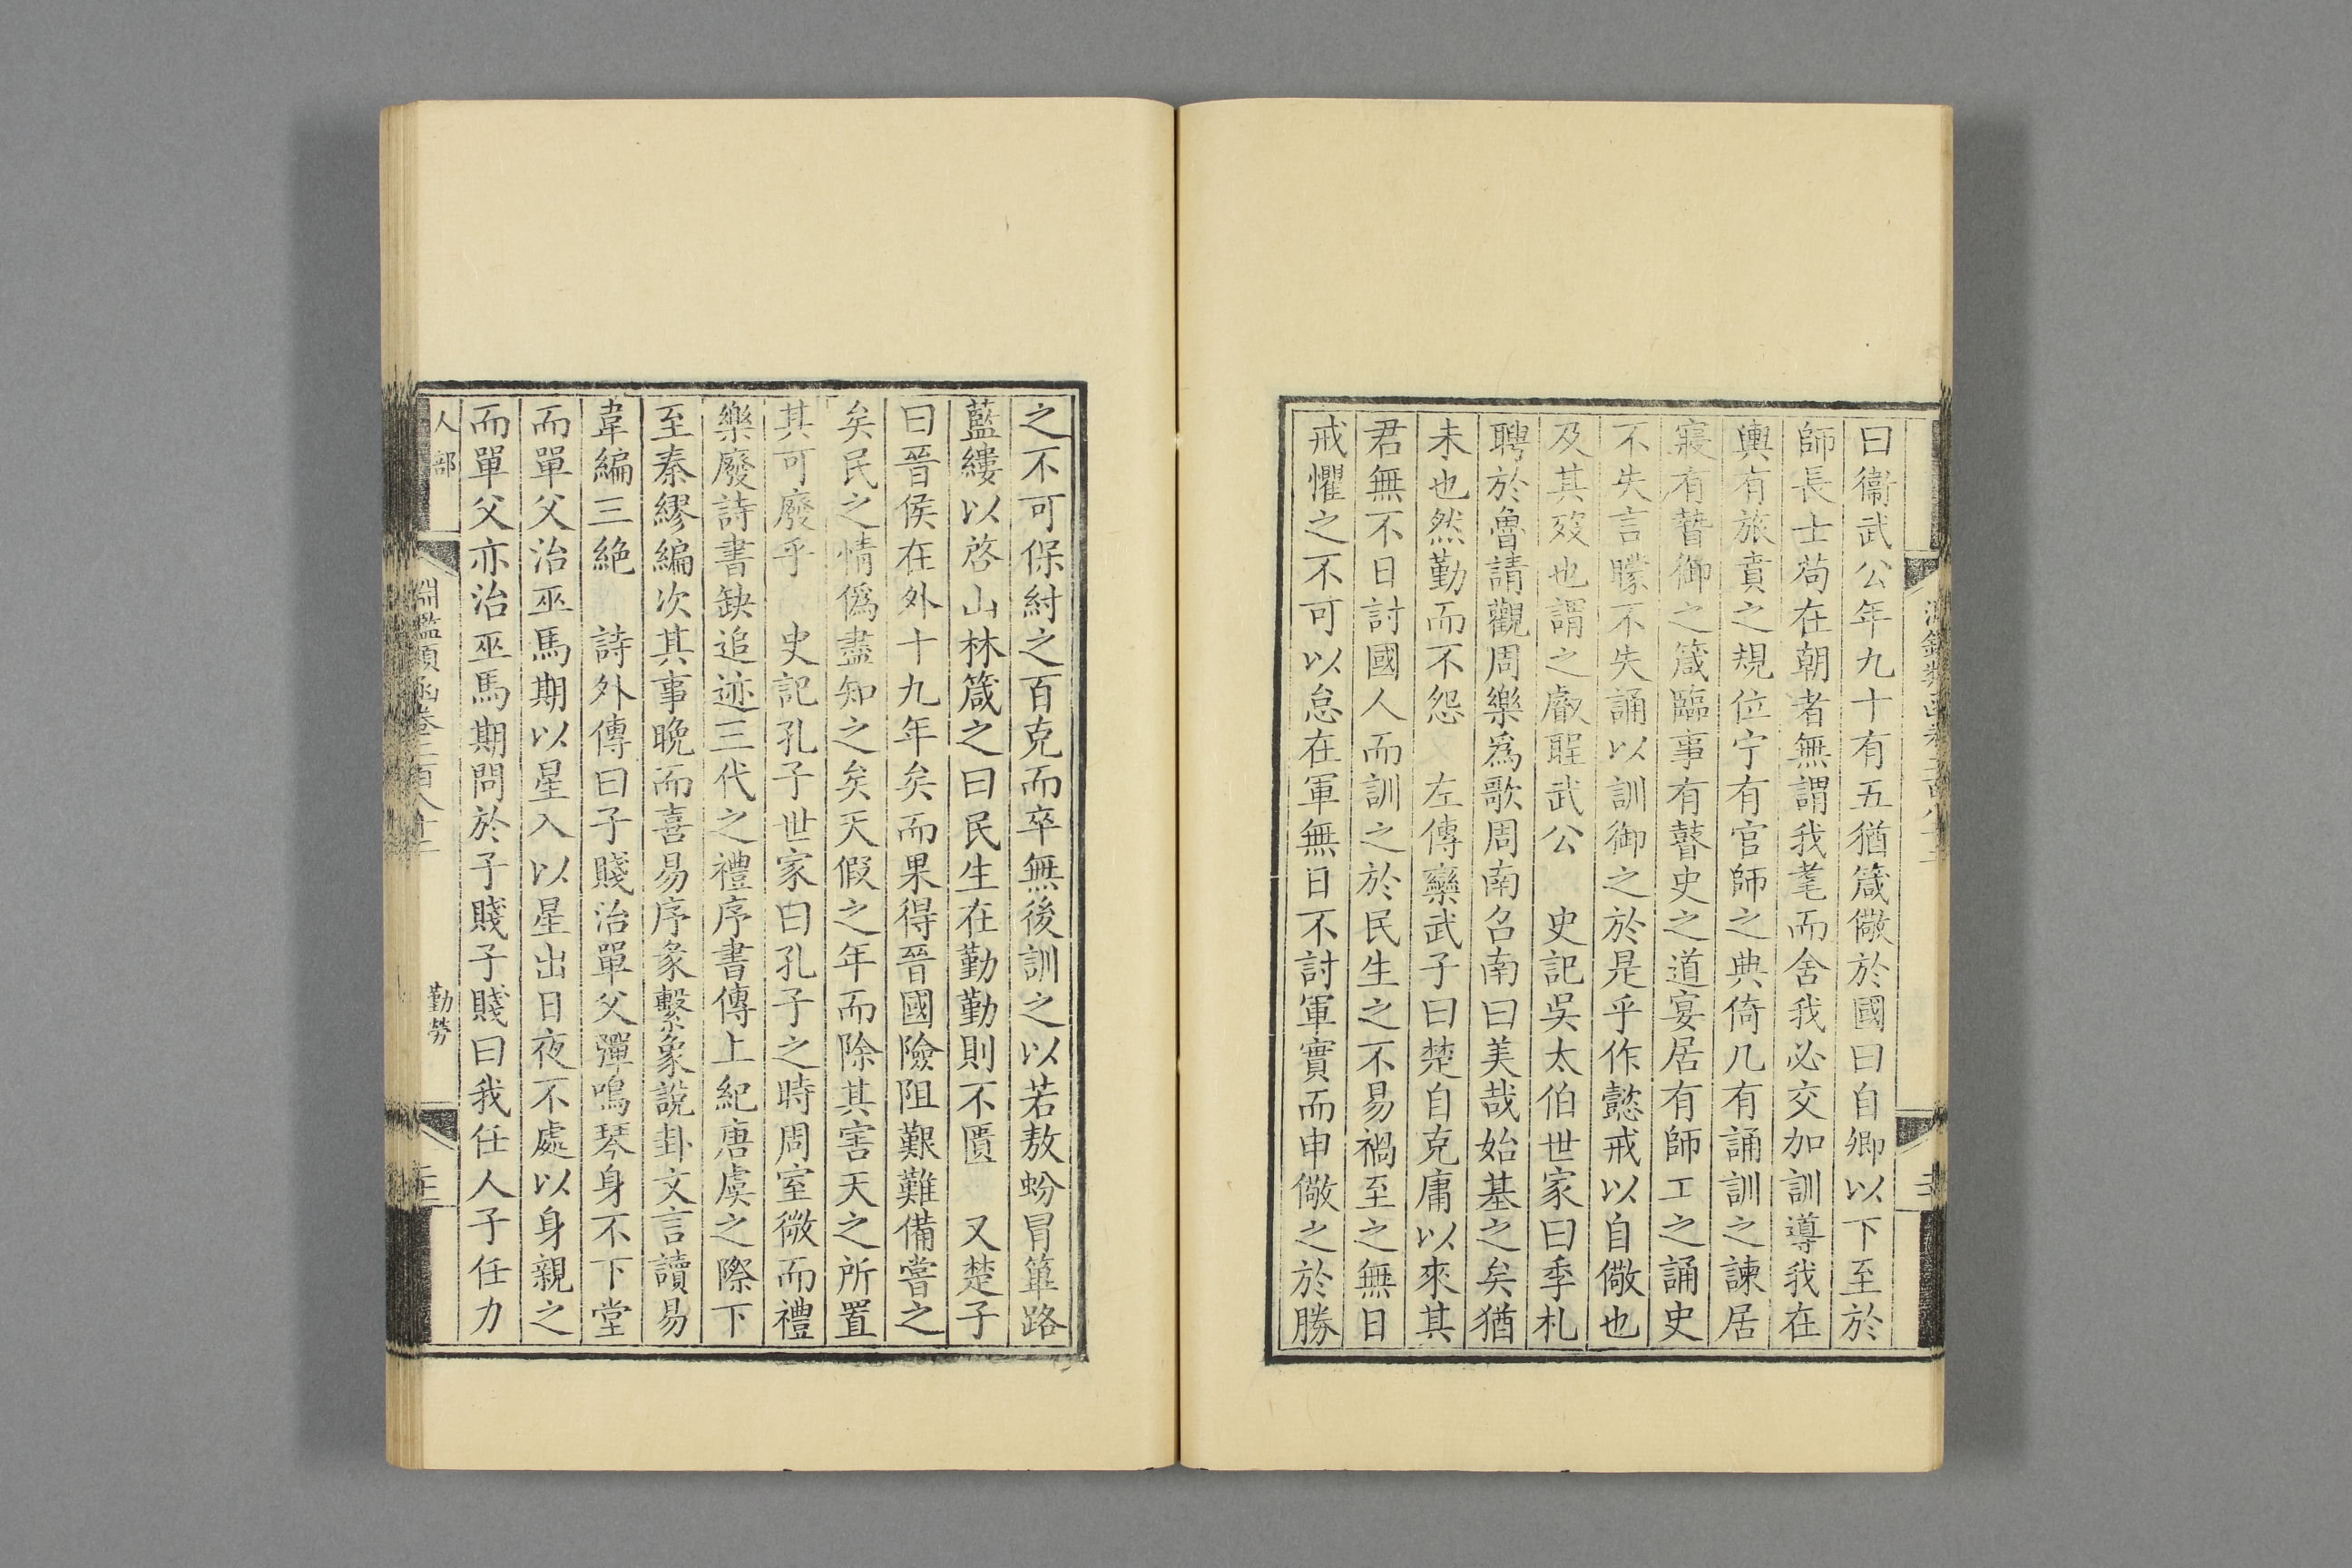 曰衞武公年九十有五猶箴儆於國曰自卿以下至於
師長士苟在朝者無謂我耄而舍我必交加訓導我在
輿有旅賁之規位宁有官師之典倚几有誦訓之諫居
寢有暬御之箴臨事有瞽史之道宴居有師工之誦史
不失言矇不失誦以訓御之於是乎作懿戒以自儆也
及其歿也謂之叡聖武公　史記吳太伯世家曰季札
聘於魯請觀周樂爲歌周南召南曰美哉始基之矣猶
未也然勤而不怨　左傳欒武子曰楚自克庸以來其
君無不日討國人而訓之於民生之不易禍至之無日
戒懼之不可以怠在軍無日不討軍實而申儆之於勝
之不可保紂之百克而卒無後訓之以若敖蚡冒篳路
藍縷以啓山林箴之曰民生在勤勤則不匱　又楚子
曰晉侯在外十九年矣而果得晉國險阻艱難備嘗之
矣民之情僞盡知之矣天假之年而除其害天之所置
其可廢乎　史記孔子世家曰孔子之時周室微而禮
樂廢詩書缺追迹三代之禮序書傳上紀唐虞之際下
至秦繆編次其事晚而喜易序彖繫象說卦文言讀易
韋編三絶　詩外傳曰子賤治單父彈鳴琴身不下堂
而單父治巫馬期以星入以星出日夜不處以身親之
而單父亦治巫馬期問於子賤子賤曰我任人子任力
人部
淵鑑類函卷二百八十二
勤勞